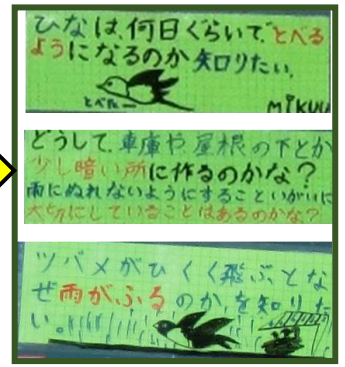 ひなは、何日ぐらいで、とべる
ようになるのか知りたい。
とべたー
MiKUU
どうして、車庫や屋根の下とか
少し暗い所に作るのかな？
雨にぬれないようにすること いがいに
大切にしていることはあるのかな？
ツバメがひくく飛ぶとな
ぜ雨がふるのか、を知りた
い。